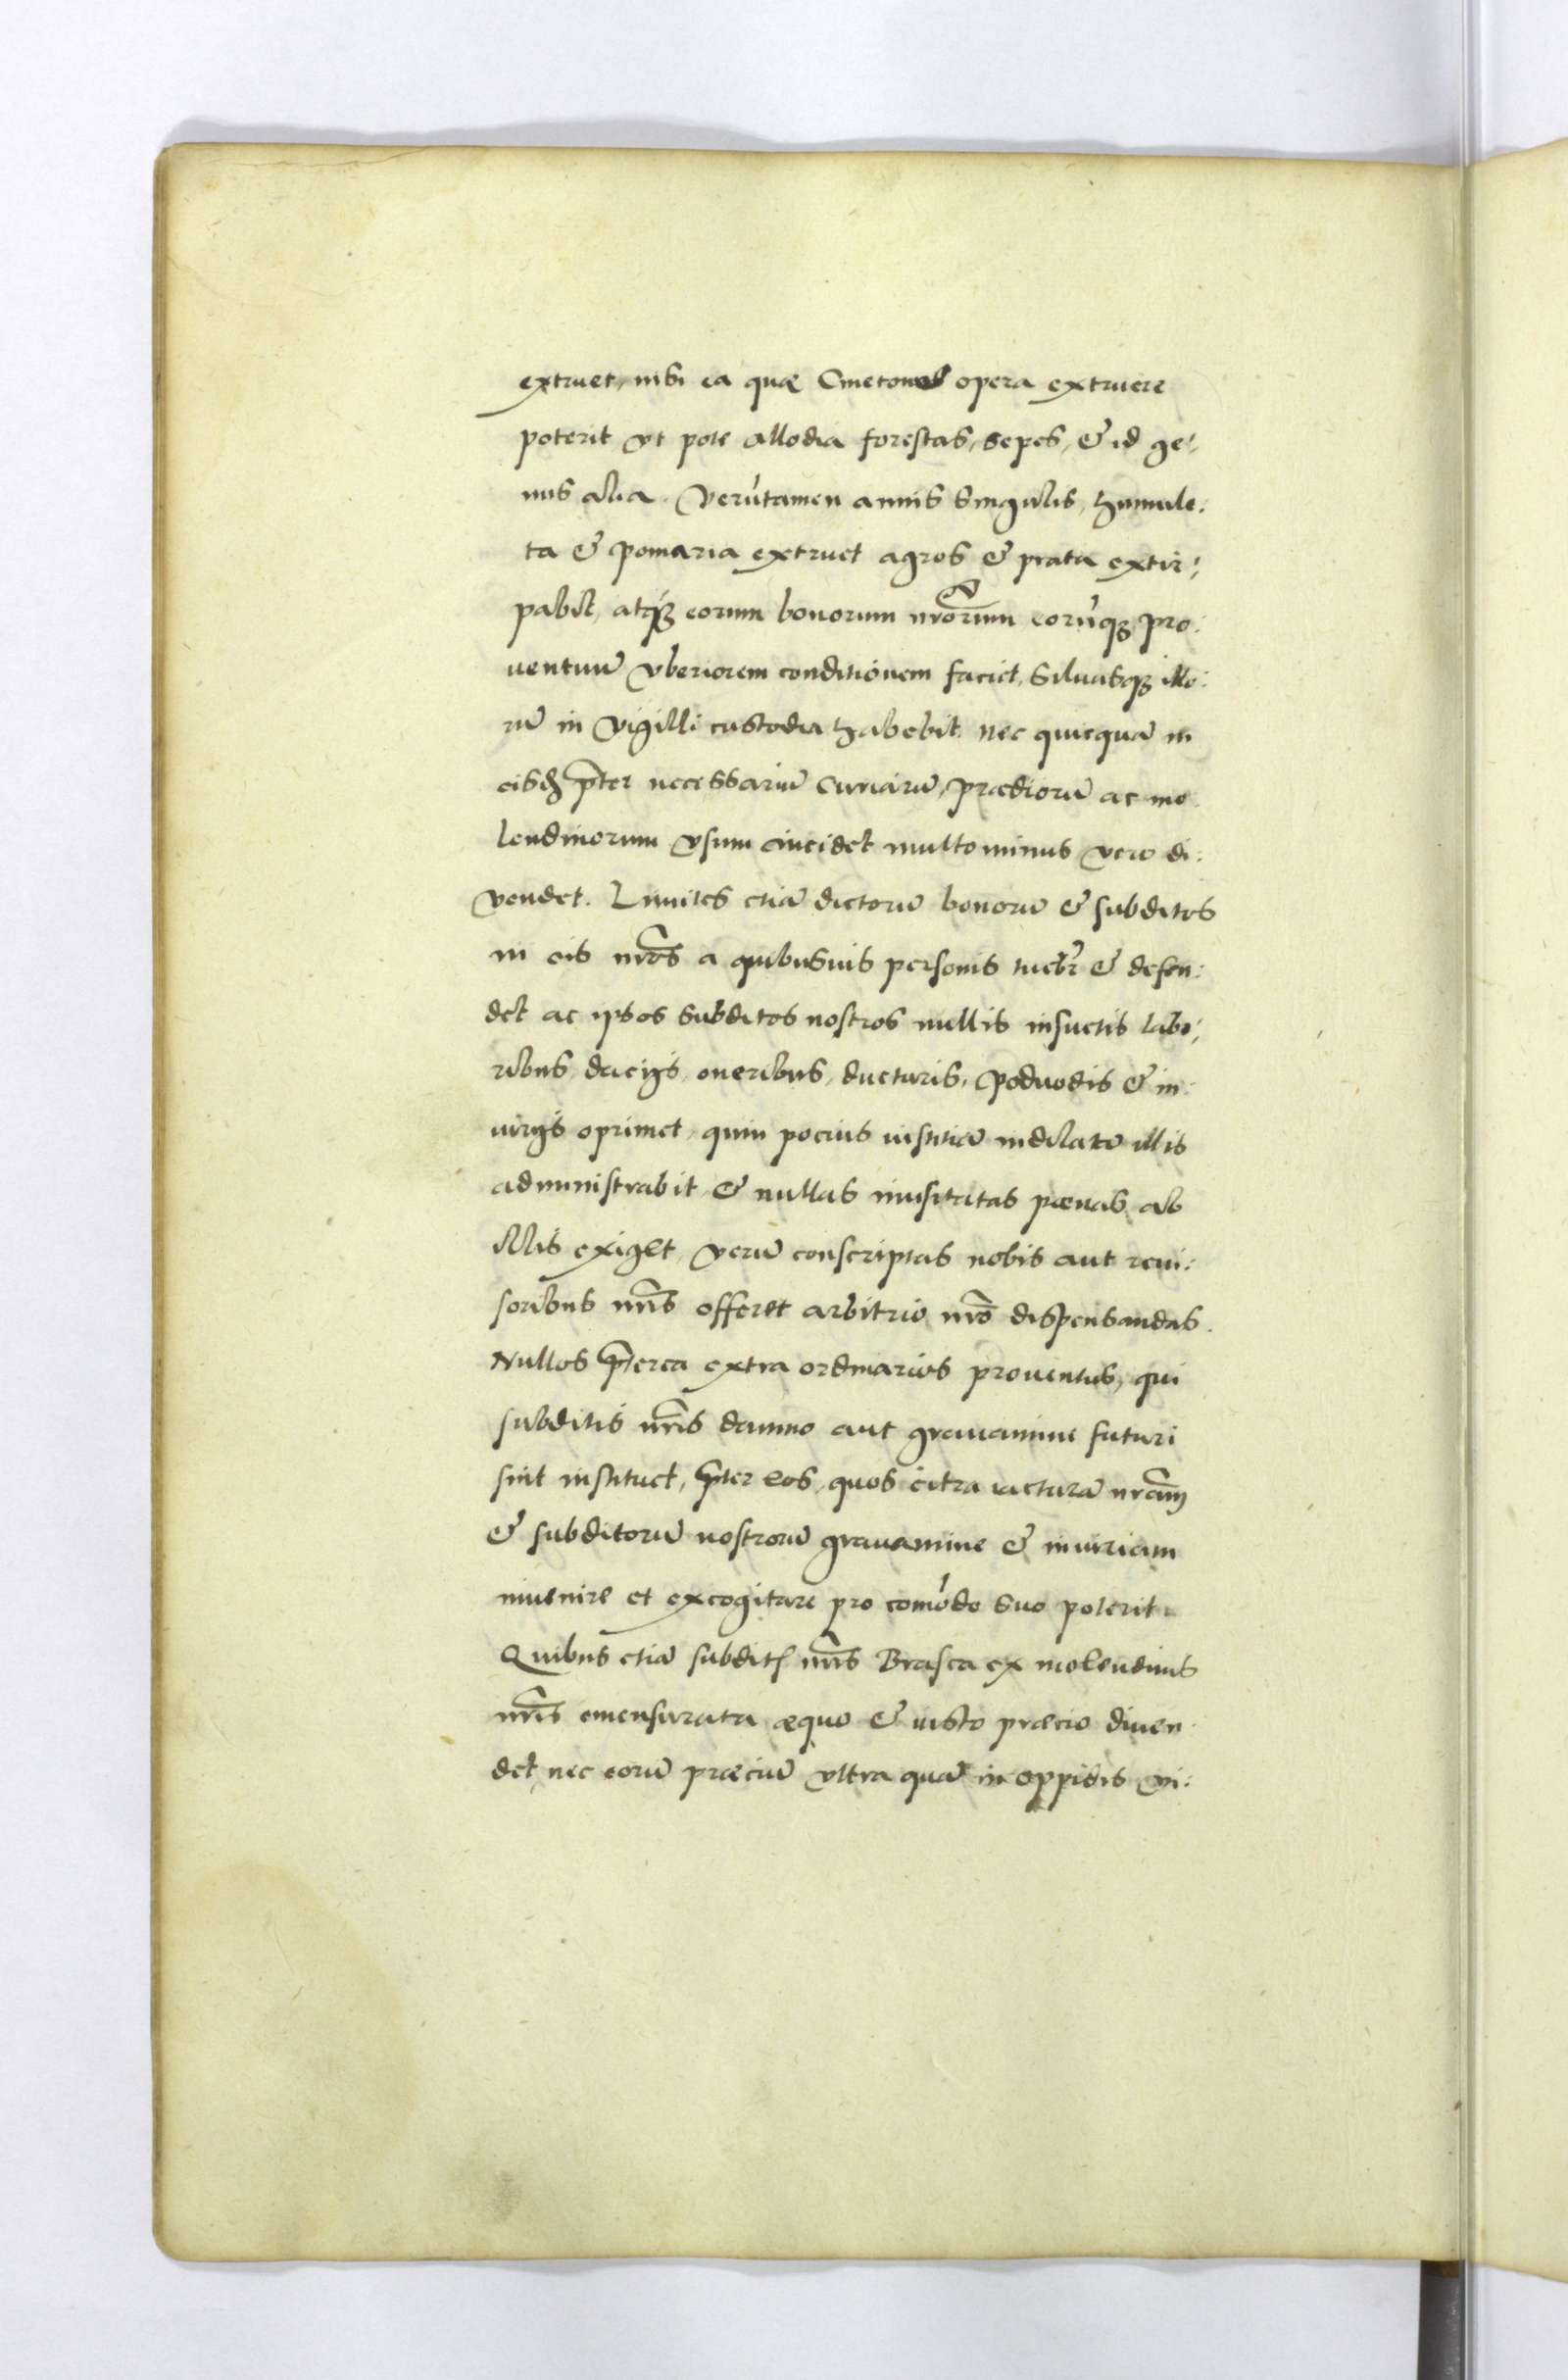 extruet, nisi ea quæ Cmetones opera extruere
poterit vt pote allodia forestas, sepes, & id ge:
nus alia. Verũtamen annis singulis, humule:
ta & pomaria extruet agros & prata extir:
pabit, atq₃ eorum bonorum nr̃orum eorũq₃ pro:
uentuũ vberiorem conditionem faciet, siluasq₃ illo:
rũ in vigilli custodia habebit. nec quicquã in
eisdẽ p̃ter necessariũ Curiarũ, prædiorũ ac mo
lendinorum vsum incidet multominus vero di:
vendet. Limites etiã dictorũ bonorũ & subditos
in eis nr̃os a quibusuis personis tuebr̃ & defen:
det ac ipsos subditos nostros nullis insuetis labo:
ribus, dacijs, oneribus, ducturis, poduodis & in
iurijs oprimet, quin pocius iusticiã indilatã illis
administrabit, & nullas inusitatas pœnas ab
illis exiget, verũ conscriptas nobis aut reui:
soribus nr̃is offeret arbitrio nr̃o dispensandas.
Nullos p̃terea extra ordinarios prouentus, qui
subditis nr̃is damno aut grauamine futuri
sint instituet, p̃ter eos, quos citra iacturã nr̃am
& subditorũ nostrorũ grauamine & iniuriam
inuenire et excogitare pro com̃odo suo poterit
Quibus etiã subdit nr̃is Brasea ex molendinis
nr̃is emensurata æquo & iusto præcio diuen
det, nec eorũ præciũ vltra quã in oppidis vi: